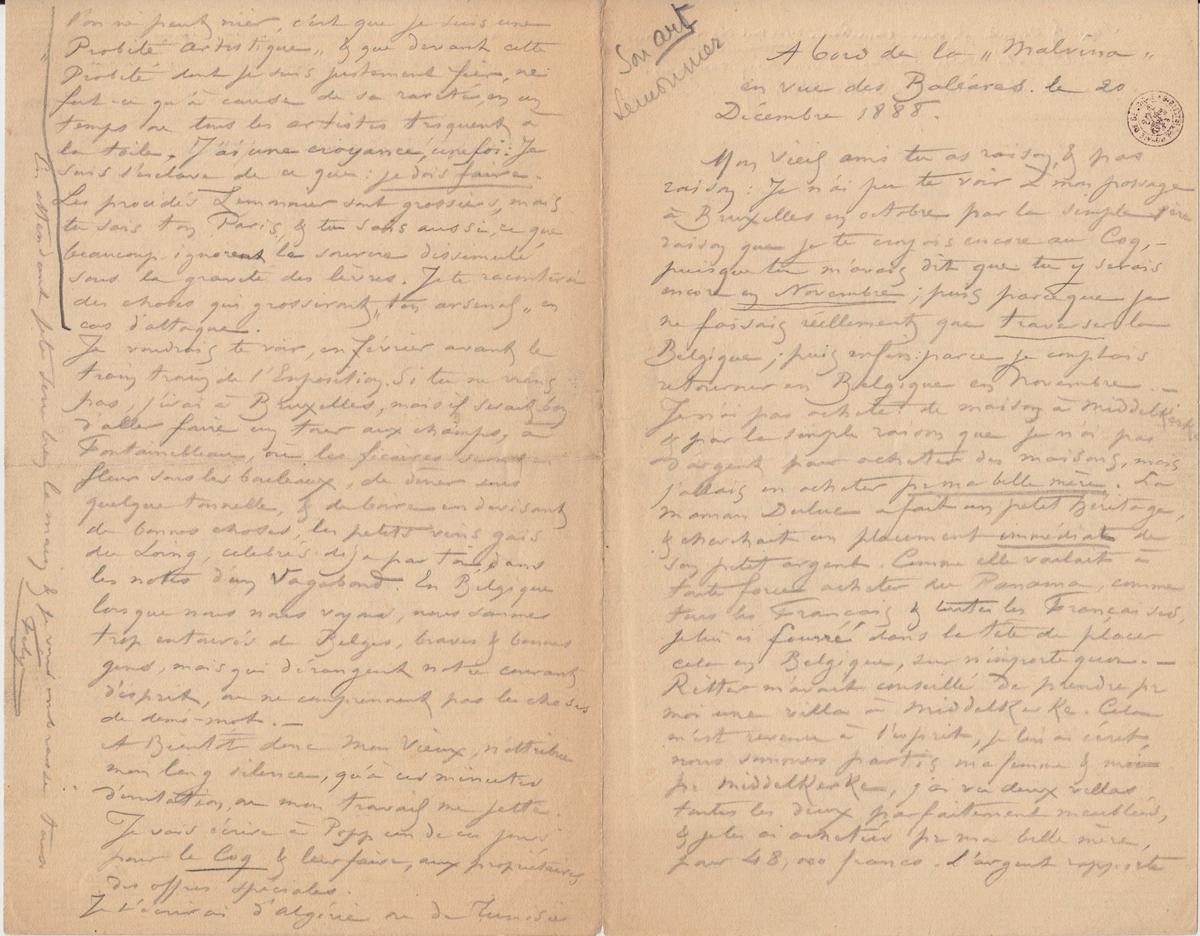 Son art
Lemonnier
A bord de la „Malvina"
en vue des Baléares. le 20
Décembre 1888.
Mon Vieil ami tu as raison, & pas
raison : Je n'ai pu te voir à mon passage
à Bruxelles en octobre par la simple 1ère
raison que je te croyais encore au Coq, –
puisque tu m'avais dit que tu y serais
encore en Novembre ; puis parce que je
ne faisais réellement que traverser la
Belgique ; puis enfin : parce je comptais
retourner en Belgique en Novembre. –
Je n'ai pas acheté de maison à Middelkerke
& par la simple raison que je n'ai pas
d'argent pour acheter des maisons, mais
j'allais en acheter pr ma belle mère. La
maman Duluc a fait un petit héritage,
& cherchait un placement immédiat de
son petit argent. Comme elle voulait à
toute force acheter du Panama, comme
tous les Français & toutes les Françaises,
je lui ai fourré dans la tête de placer
cela en Belgique, sur n'importe quoi. –
Ritter m'avait conseillé de prendre pr
moi une villa à Middelkerke. Cela
m'est revenu à l'esprit, je lui ai écrit
nous sommes partis ma femme & moi
pr Middelkerke, j'ai vu deux villas
toutes les deux parfaitement meublées,
& je les ai achetées pr ma belle mère,
pour 48,000 francs. L'argent rapporte
l'on ne peut nier, c'est que je suis une
„Probité artistique" & que devant cette
Probité dont je suis justement fier, ne
fut-ce qu'à cause de sa rareté, en un
temps où tous les artistes troquent à
la toile. J'ai une croyance, une foi : Je
suis l'esclave de ce que : je dois faire.
Les procédés Lemonnier sont grossiers, mais
tu sais ton Paris, & tu sais aussi, ce que
beaucoup ignorent le sourire dissimulé
sous la gravité des lèvres. Je te raconterai
des choses qui grossiront „ton arsenal" en
cas d'attaque.
Je voudrais te voir, en février avant le
train train de l'Exposition. Si tu ne viens
pas, j'irai à Bruxelles, mais il serait bon
d'aller faire un tour aux champs, à
Fontainebleau, où les ficaires seront en
fleur sous les bouleaux, de dîner sous
quelque tonnelle, & de boire en devisant
de bonnes choses, les petits vins gais
du Loing, célébrés déjà par toi, dans
les notes d'un Vagabond. En Belgique
lorsque nous nous voyons, nous sommes
trop entourés de Belges, braves & bonnes
gens, mais qui dérangent notre courant
d'esprit, ou ne comprennent pas les choses
de demi-mot. –
A Bientôt donc Mon Vieux, n'attribue
mon long silence, qu'à ces minutes
d'irritation, où mon travail me jette.
Je vais écrire à Popp un de ces jours
pour le Coq & leur faire, aux propriétaires
des offres spéciales.
Je t'écrirai d'Algérie ou de Tunisie
En attendant je te serre bien la main & je vous embrasse tous
Fély